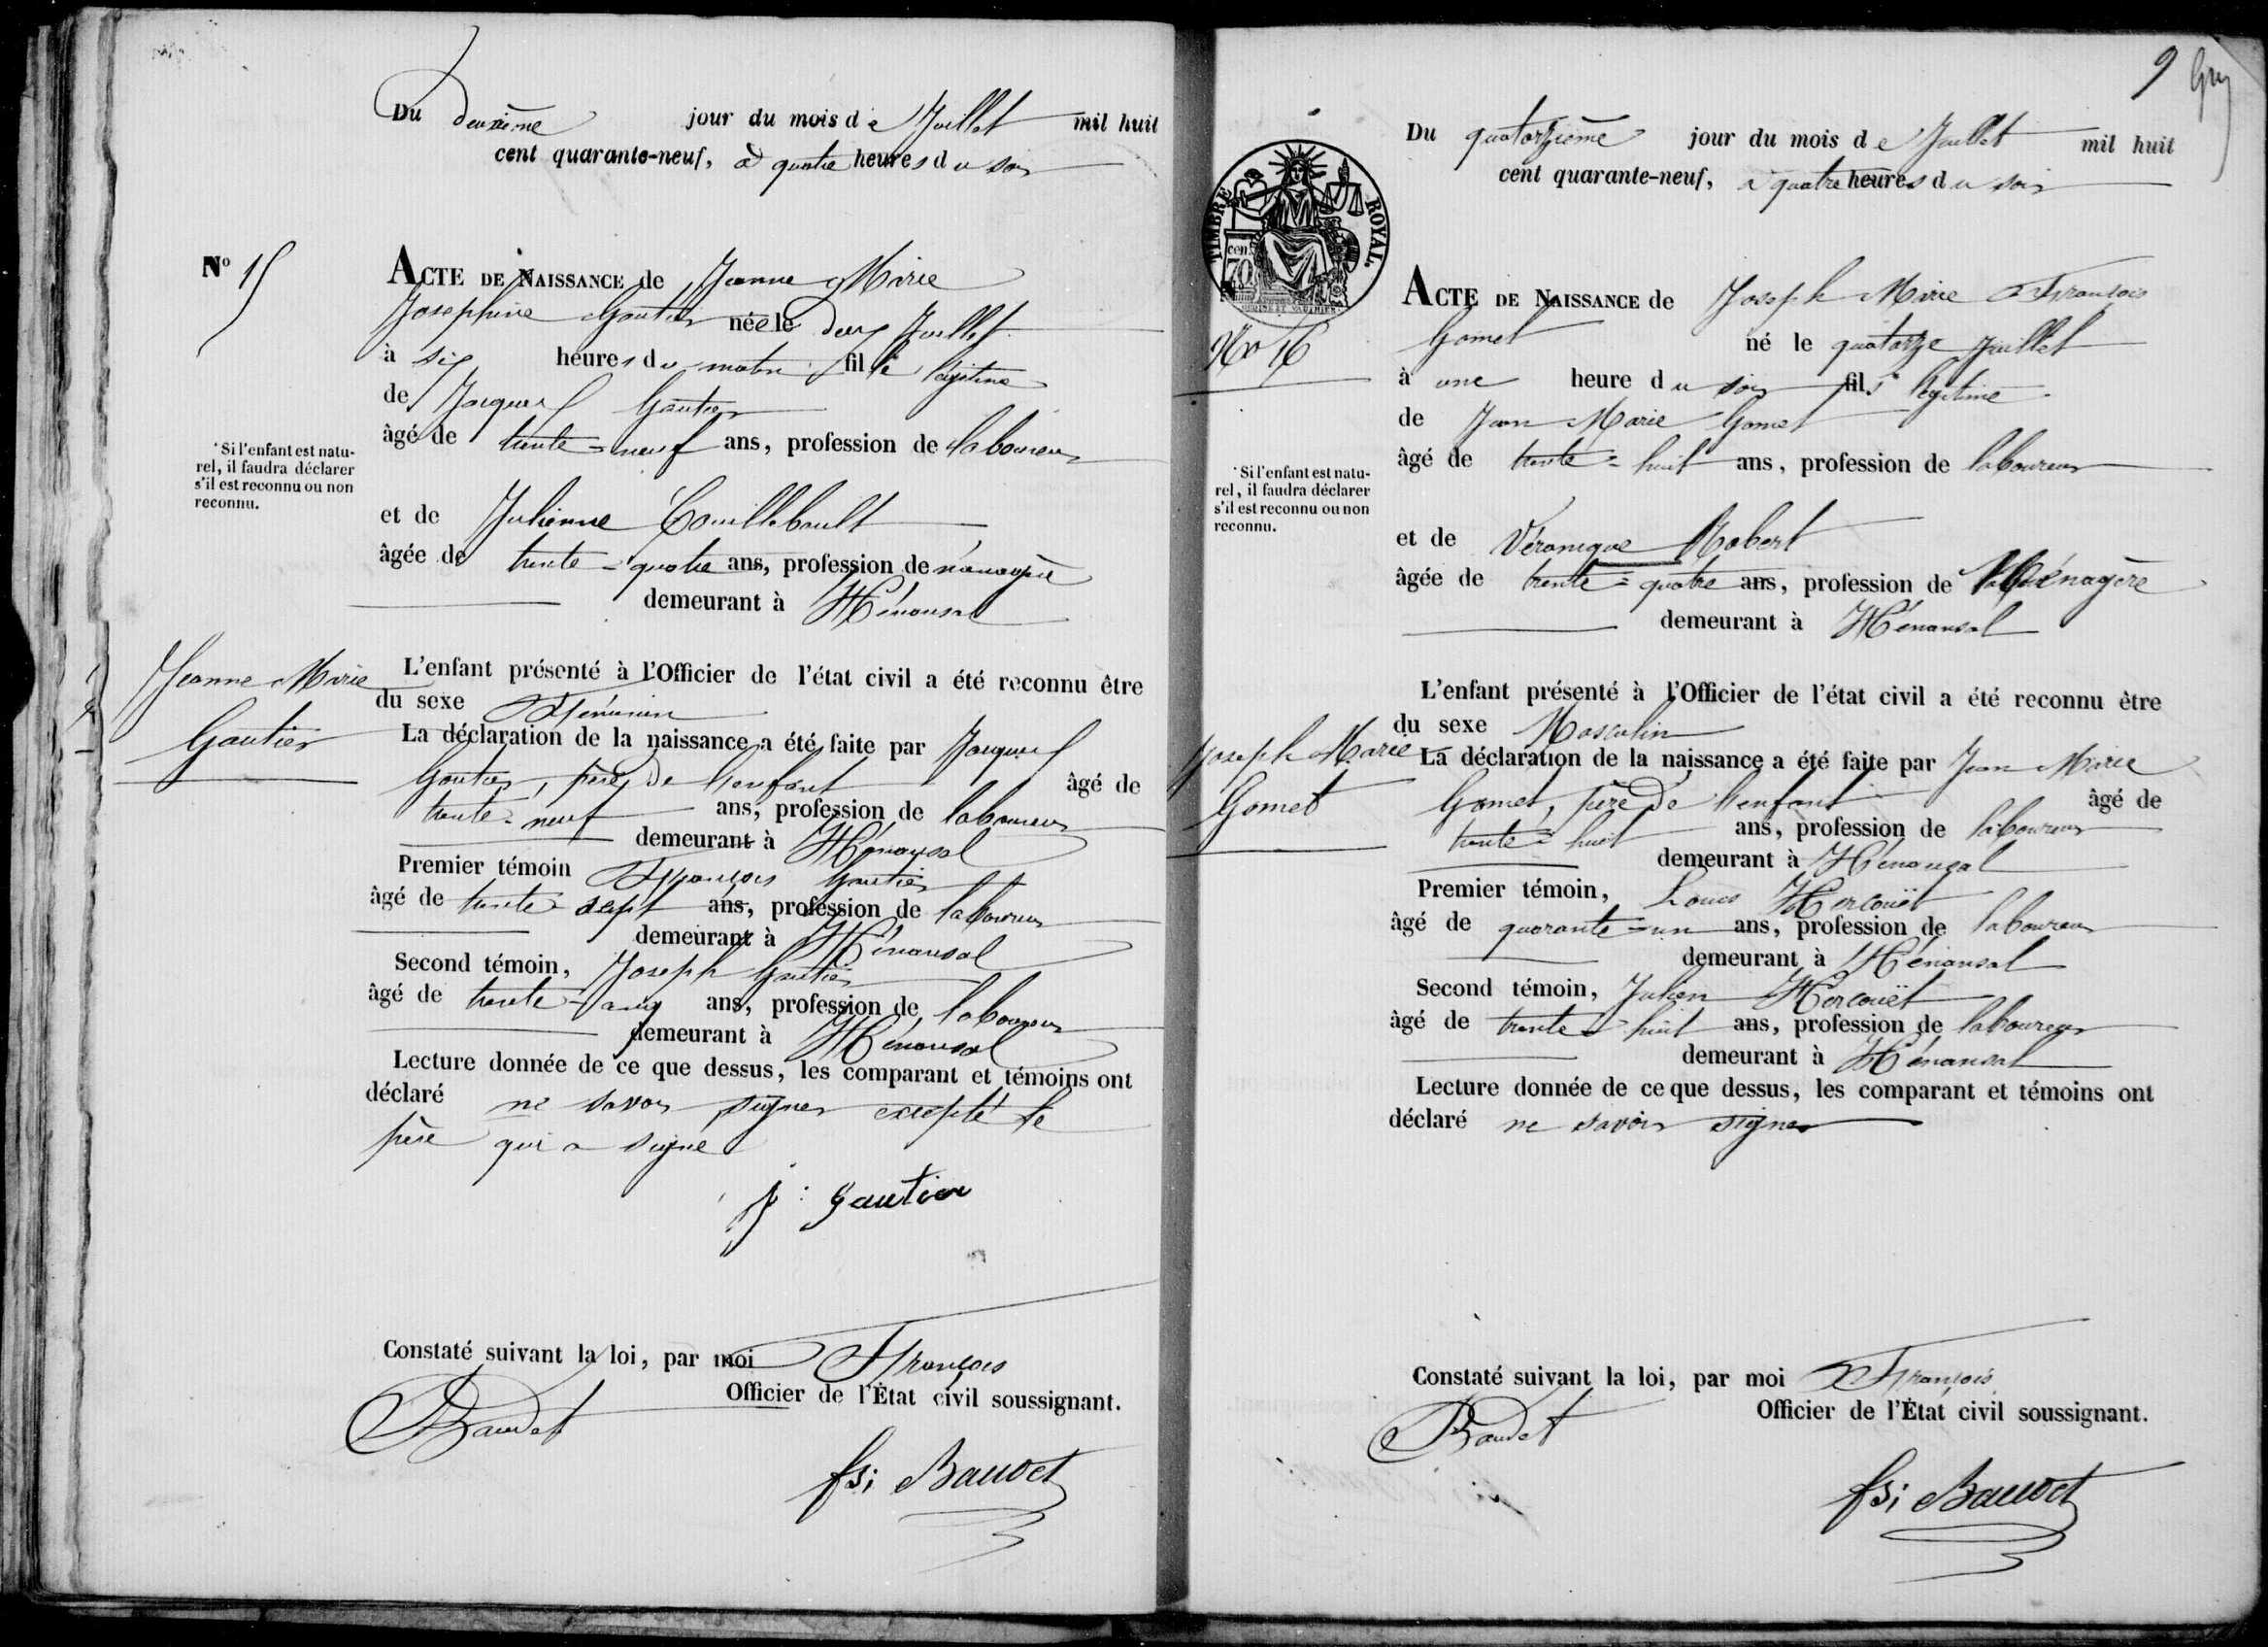 Du deuxième jour du mois de Juillet mil huit
cent quarante-neuf, à quatre heures du soir
No 15
ACTE DE NAISSANCE de Jeanne Marie
Josephine Gautier née le deux Juillet
à six heures du matin fille légitime
de Jacques Gautier
âgé de trente-neuf ans, profession de laboureur
* Si l'enfant est natu-
rel, il faudra déclarer
s'il est reconnu ou non
reconnu.
et de Julienne Couillebault
âgée de trente-quatre ans, profession de ménagère
demeurant à Hénansal
Jeanne Marie
Gautier
L'enfant présenté à l'Officier de l'état civil a été reconnu être
du sexe Féminin
La déclaration de la naissance a été faite par Jacques
Gautier, père de l'enfant âgé de
trente-neuf ans, profession de laboureur
demeurant à Hénansal
Premier témoin François Gautier
âgé de trente-sept ans, profession de laboureur
demeurant à Hénansal
Second témoin, Joseph Gautier
âgé de trente-cinq ans, profession de laboureur
demeurant à Hénansal
Lecture donnée de ce que dessus, les comparant et témoins ont
déclaré ne savoir signer excepté le
père qui a signé
j : gautier
Constaté suivant la loi, par moi François
Baudet Officier de l'État civil soussignant.
fsi Baudet
9
Du quatorzième jour du mois de Juillet mil huit
cent quarante-neuf, à quatre heures du soir
TIMBRE ROYAL.
cen.
70
No 16
ACTE DE NAISSANCE de Joseph Marie François
Gomet né le quatorze Juillet
à une heure du soir fils légitime
de Jean Marie Gomet
âgé de trente-huit ans, profession de laboureur
* Si l'enfant est natu-
rel, il faudra déclarer
s'il est reconnu ou non
reconnu.
et de Véronique Robert
âgée de trente-quatre ans, profession de Ménagère
demeurant à Hénansal
Joseph Marie
Gomet
L'enfant présenté à l'Officier de l'état civil a été reconnu être
du sexe Masculin
La déclaration de la naissance a été faite par Jean Marie
Gomet, père de l'enfant âgé de
trente-huit ans, profession de laboureur
demeurant à Hénansal
Premier témoin, Louis Hercouët
âgé de quarante-un ans, profession de laboureur
demeurant à Hénansal
Second témoin, Julien Hercouët
âgé de trente-huit ans, profession de laboureur
demeurant à Hénansal
Lecture donnée de ce que dessus, les comparant et témoins ont
déclaré ne savoir signer
Constaté suivant la loi, par moi François
Baudet Officier de l'État civil soussignant.
fsi Baudet